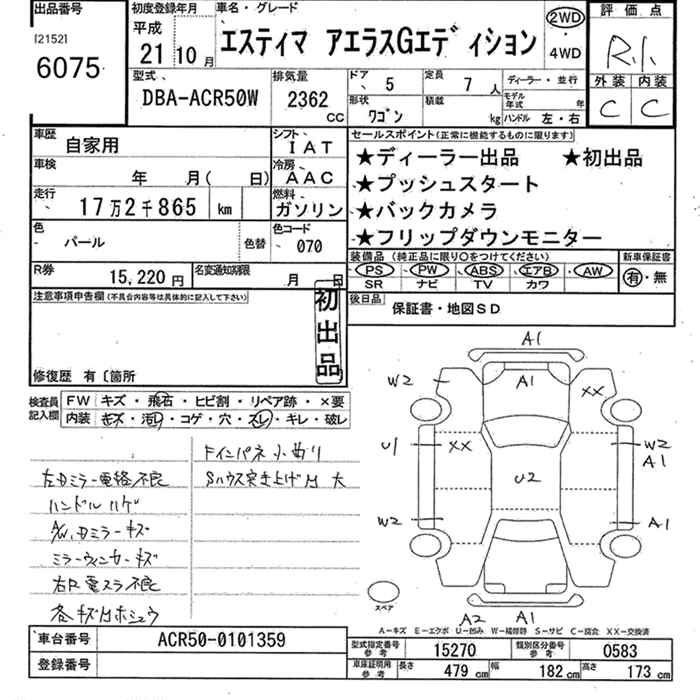 出品番号
[2152]
6075
初度登録年月
平成
21 10月
車名・グレード
エスティマ アエラスGエディション
2WD
4WD
評価点
R.1.
外装 内装
C C
型式
DBA-ACR50W
排気量
2362
CC
ドア
5
定員
7人
ディーラー・並行
形状
ワゴン
積載
kg
モデル年式 年
ハンドル 左・右
車歴
自家用
シフト
IAT
車検
年 月( 日)
冷房
AAC
走行
17万2千865 km
燃料
ガソリン
色
パール
色替
色コード
070
R券
15,220円
名変通知期限
月 日
セールスポイント(正常に機能するものに限ります)
★ディーラー出品 ★初出品
★プッシュスタート
★バックカメラ
★フリップダウンモニター
装備品(純正品に限り○をつけてください)
PS PW ABS エアB AW
SR ナビ TV カワ
新車保証書
有・無
後日品
保証書・地図SD
注意事項申告欄(不具合内容等は具体的に記入して下さい)
初出品
修復歴 有〔箇所
検査員記入欄
FW キズ・飛石・ヒビ割・リペア跡・×要
内装 キズ・汚レ・コゲ・穴・スレ・キレ・破レ
左Dミラー電格不良
ハンドルハゲ
A/W、Dミラーキズ
ミラーウィンカーキズ
各キズ凹ホシュウ
ドインパネ小曲リ
Sハウス突き上げ凹 大
A1
W2
A1
XX
U1
XX
W2
A1
U2
W2
A1
スペア
A2 A1
A-キズ E-エクボ U-凹み W-補修跡 S-サビ C-腐食 XX-交換済
車台番号
ACR50-0101359
登録番号
型式指定番号 参考
15270
類別区分番号 参考
0583
車庫証明用 参考
長さ
479cm
幅
182cm
高さ
173cm